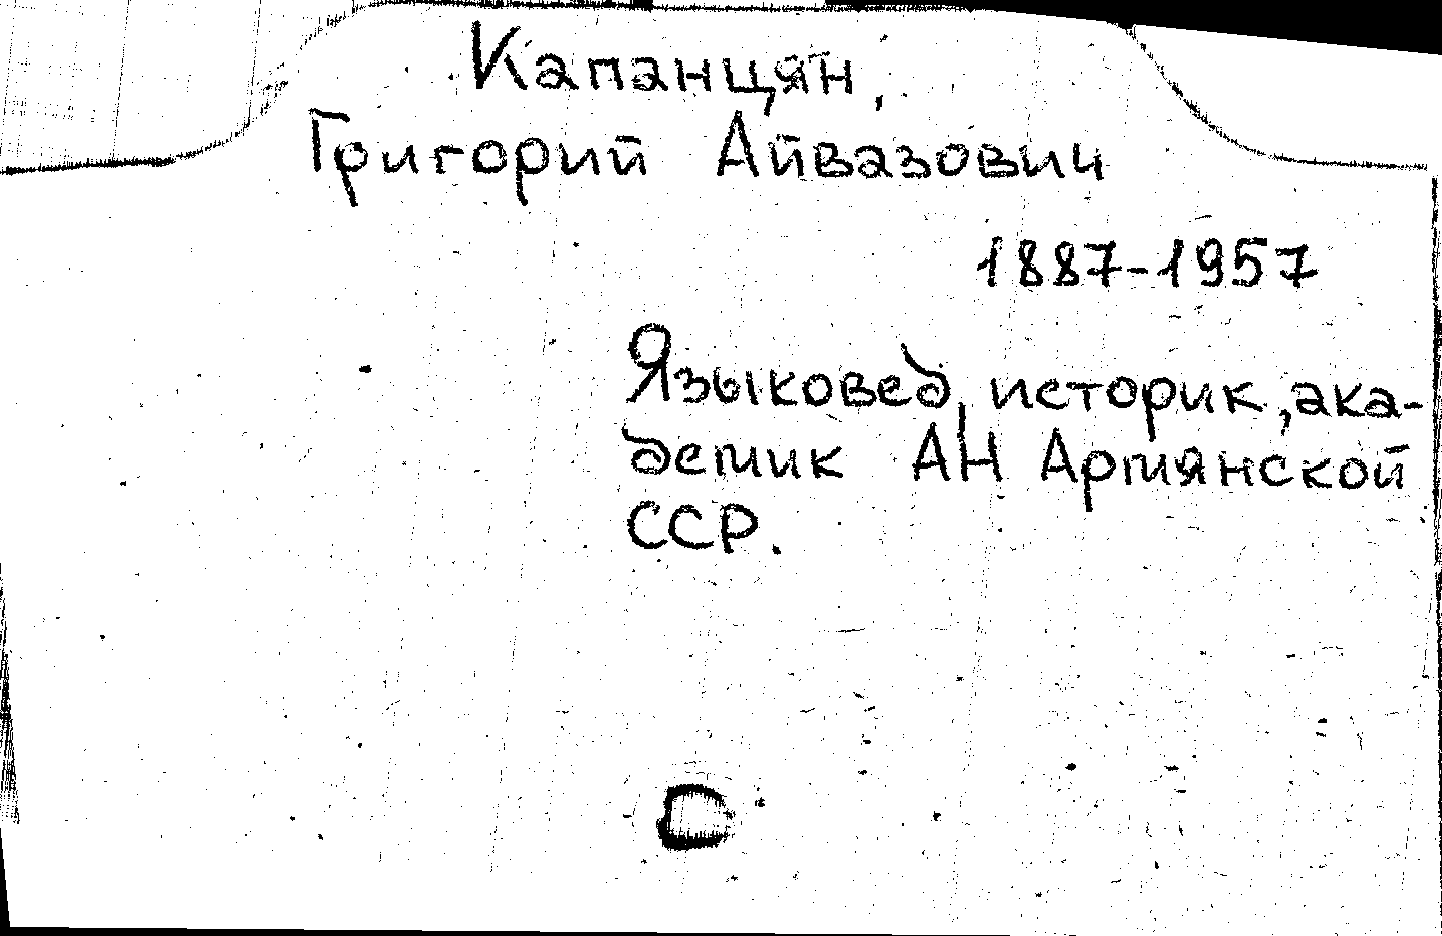 Капанцян,
Григорий Айвазович
1887-1957
Языковед, историк, ака-
демик АН Армянской
ССР.